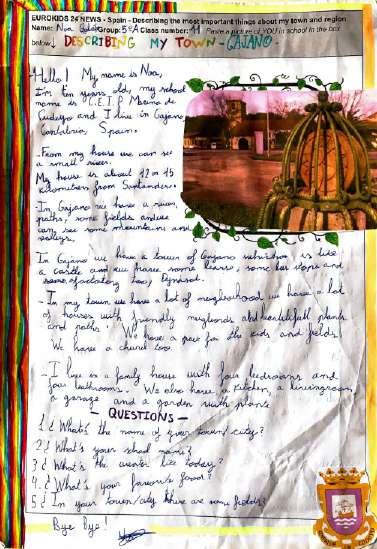 EUROKIDS 24 NEWS - Spain - Describing the most important things about my town and region
Name: Noa Group: 5ºA Class number: 11 Paste a picture of YOU in school in the box
below↓ DESCRIBING MY TOWN - GAJANO
Hello! My name is Noa,
I'm ten years old, my school
name is C.E.I.P Marina de
Cudeyo and I live in Gajano
Cantabria, Spain.
-From my house we can see
a small river.
My house is about 12 or 15
kilometres from Santander.
-In Gajano we have a river,
paths, some fields and we
can see some mountains and
valleys,
In Gajano we have a tower of Gajano which is like
a castle and we have some some
some too,
-In my town we have a lot of neighborhood we have a lot
of houses with friendly and beautifull plants
and paths. We have a for the kids and fields
We have a church too.
-I live in a family house with four bedrooms and
four bathrooms. We also have a kitchen, a livingroom,
a garage and a garden with plants
- QUESTIONS -
1¿ What's the name of your town/city?
2¿ What's your school name?
3¿ What's the like today?
4¿ What's your food?
5¿ In your town/city there are some fields?
Bye Bye!